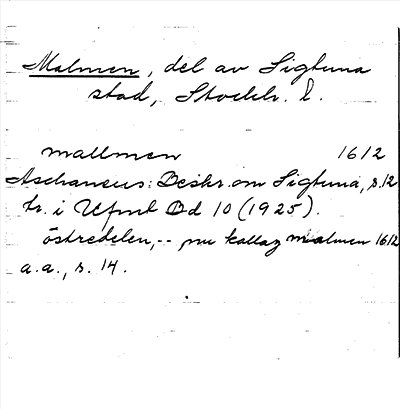 Malmen, del av Sigtuna
stad, Stockh. l.
mallmen 1612
Aschaneus: Beskr. om Sigtuna, s. 12
tr. i Upmt Od 10 (1925).
östredelen, -- nu kallaz malmen 1612
a.a., s. 14.